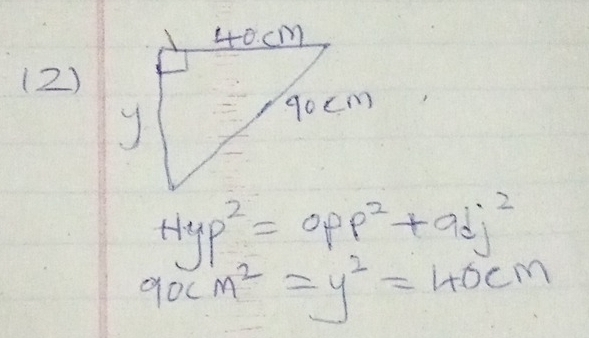 40cm
(2)
y
90cm
Hyp² = opp² + adj²
90cm² = y² = 40cm